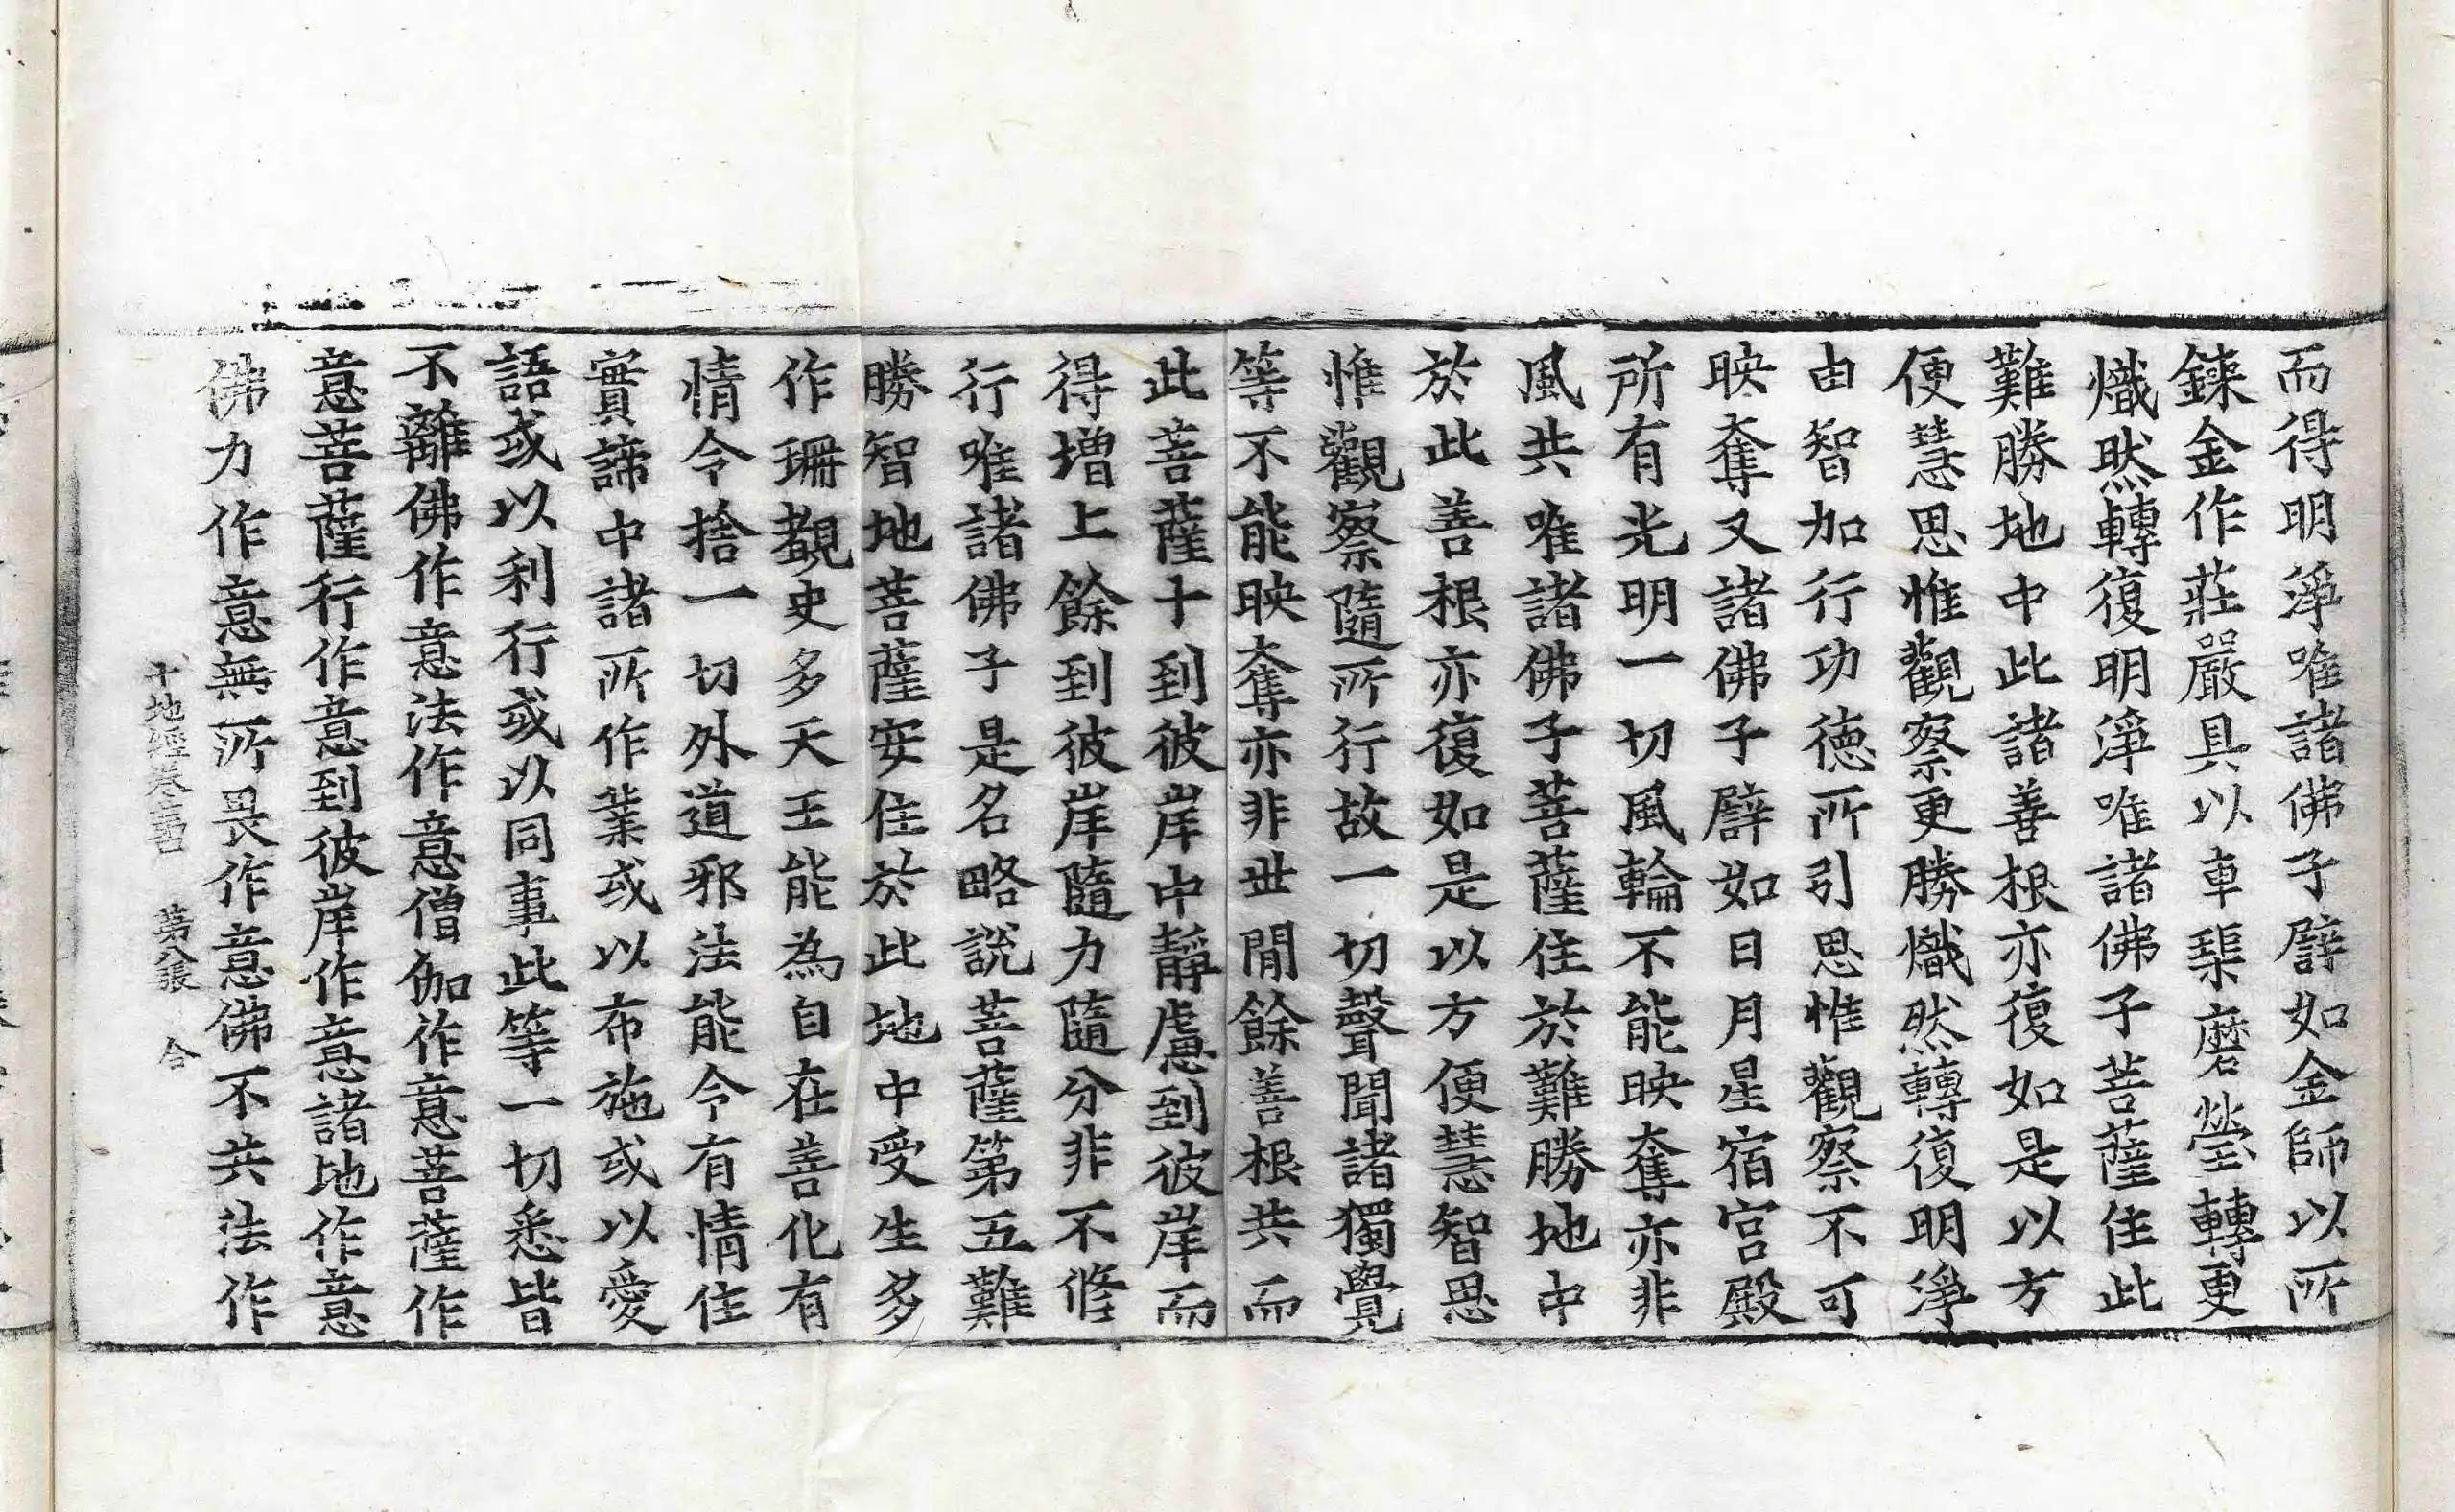 而得明淨唯諸佛子譬如金師以所
鍊金作莊嚴具以車𤦲磨瑩轉更
熾然轉復明淨唯諸佛子菩薩住此
難勝地中此諸善根亦復如是以方
便慧思惟觀察更勝熾然轉復明淨
由智加行功德所引思惟觀察不可
映奪又諸佛子譬如日月星宿宮殿
所有光明一切風輪不能映奪亦非
風共唯諸佛子菩薩住於難勝地中
於此善根亦復如是以方便慧智思
惟觀察隨所行故一切聲聞諸獨覺
等不能映奪亦非世間餘善根共而
此菩薩十到彼岸中靜慮到彼岸而
得增上餘到彼岸隨力隨分非不修
行唯諸佛子是名略說菩薩第五難
勝智地菩薩安住於此地中受生多
作珊覩史多天王能為自在善化有
情令捨一切外道邪法能令有情住
實諦中諸所作業或以布施或以愛
語或以利行或以同事此等一切悉皆
不離佛作意法作意僧伽作意菩薩作
意菩薩行作意到彼岸作意諸地作意
佛力作意無所畏作意佛不共法作
十地經卷 第八張 合